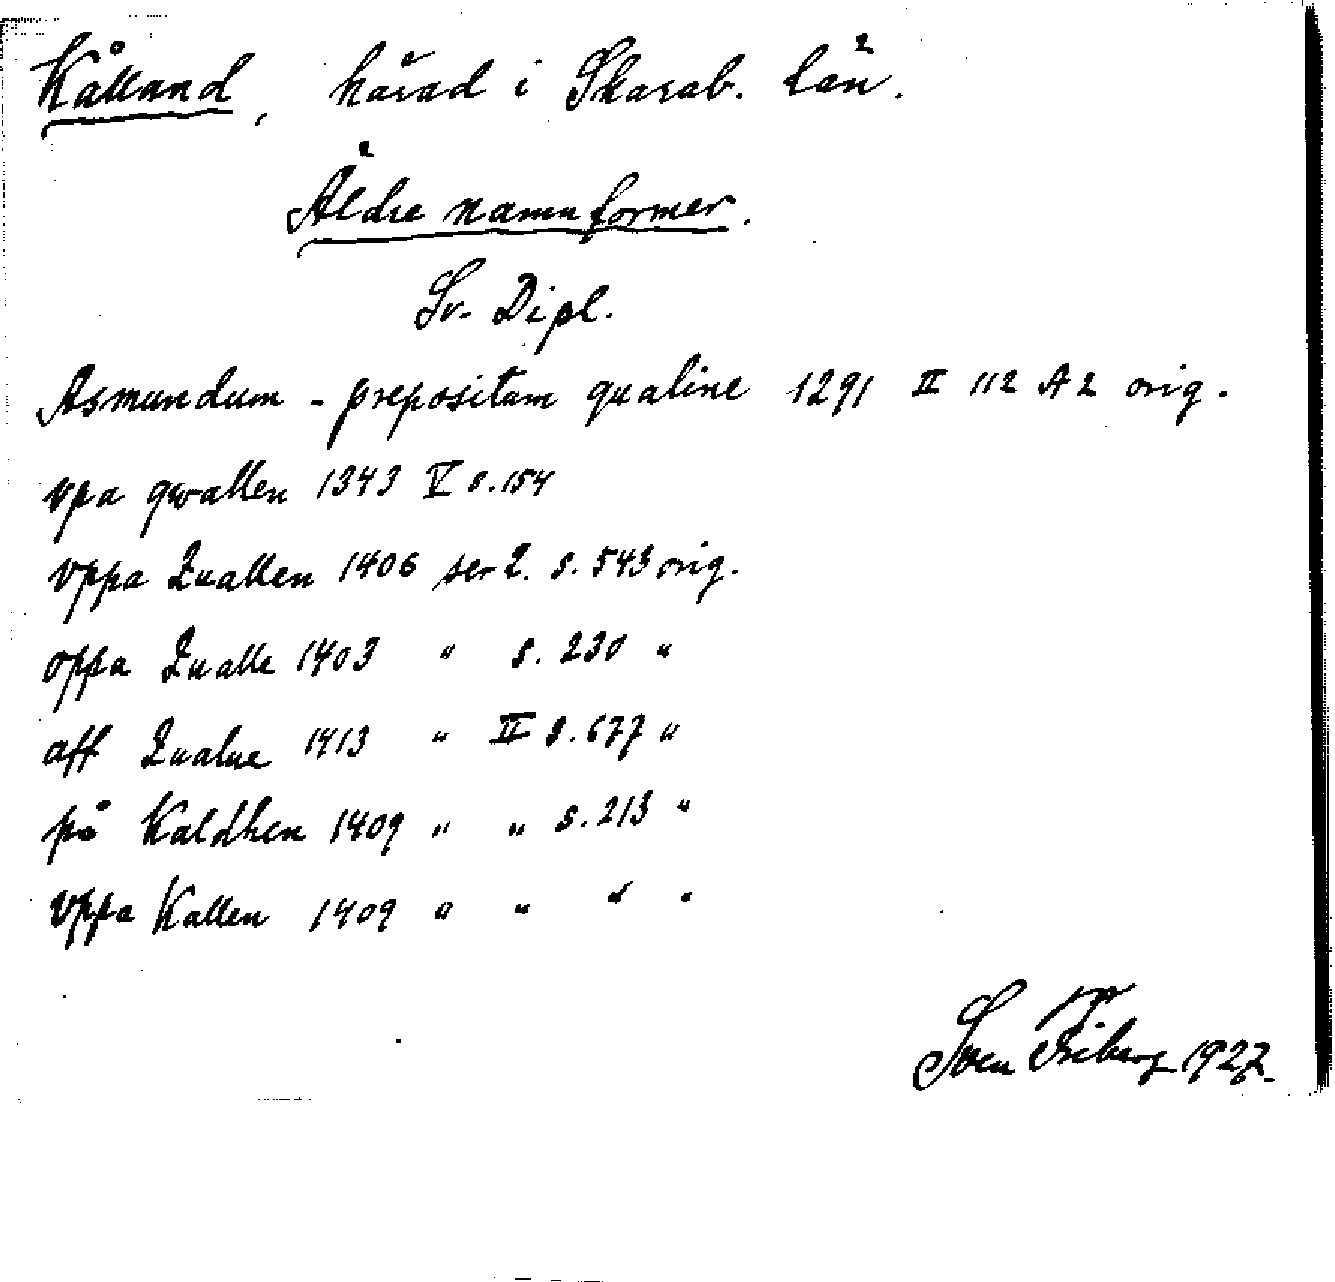 Kålland, härad i Skarab. län.
Äldre namnformer.
Sv. Dipl.
Asmundum - prepositum qualine 1291 II 112 A 2 orig.
vpa qwallen 1343 V s. 154
vppa Quallen 1406 ser 2. s. 543 orig.
oppa Qualle 1403 " s. 230 "
aff Qualue 1413 " II s. 677 "
på Kaldhen 1409 " " s. 213 "
vppa Kallen 1409 " " " "
Sven Friberg 1927.